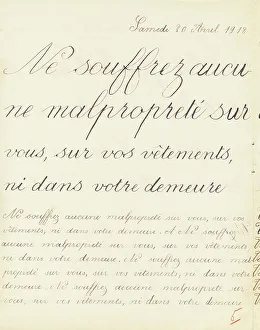 Samedi 20 Avril 1912
Ne souffrez aucu
ne malpropreté sur
vous, sur vos vêtements,
ni dans votre demeure
Ne souffrez aucune malpropreté sur vous, sur vos
vêtements, ni dans votre demeure. A Ne Souffrez
aucune malpropreté sur vous, sur vos vêtements
ni dans votre demeure. Ne souffrez aucune mal
propreté sur vous, sur vos vêtements, ni dans votre
demeure. Ne souffrez aucune malpropreté sur
vous, sur vos vêtements, ni dans votre demeure
5